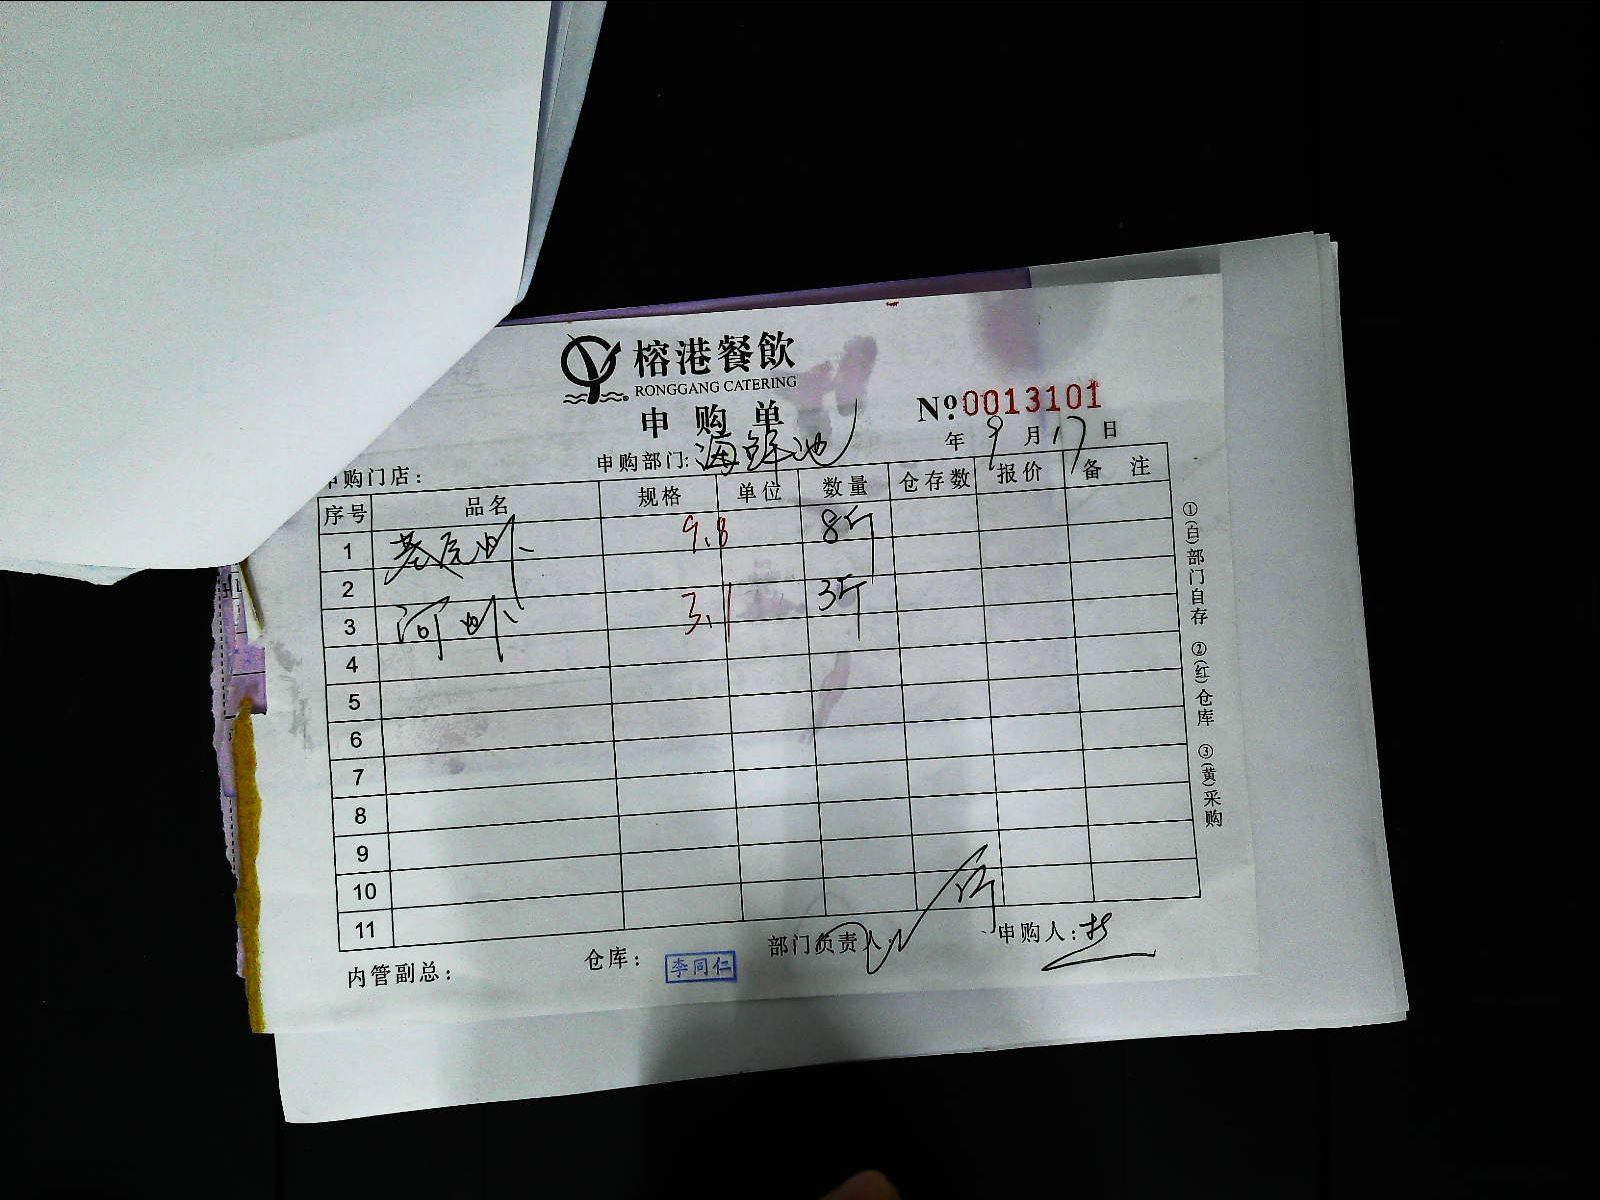 榕港餐飲
RONGGANG CATERING
申购单
№0013101
年9月17日
申购门店：
申购部门:海鲜池
序号 品名 规格 单位 数量 仓存数 报价 备注
1 基尾虾 9.8 8斤
2
3 河虾 3.1 3斤
4
5
6
7
8
9
10
11
内管副总：
仓库：李同仁
部门负责人:
申购人:
①(白)部门自存 ②(红)仓库 ③(黄)采购